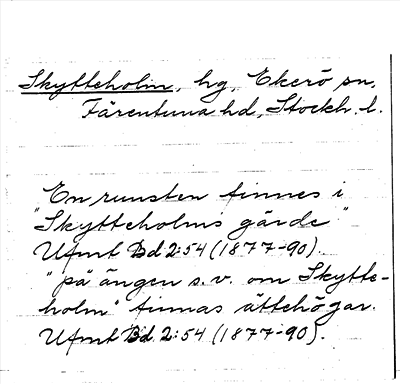 Skytteholm, hg, Ekerö sn,
Färentuna hd, Stockh. l.
En runsten finnes i
"Skytteholms gärde"
Ufmt Bd 2:54 (1877-90).
"på ängen s.v. om Skytte-
holm" finnas ättehögar.
Ufmt Bd 2:54 (1877-90).